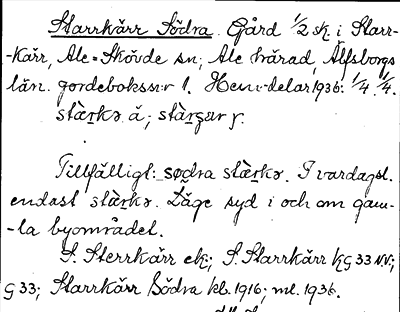 Starrkärr Södra. Gård 1/2 sk i Starr-
-kärr, Ale-Skövde sn; Ale härad, Älfsborgs
län. jordeboksnr 1. Hem:delar 1936: 1/4. 1/4.
stàrkə ä;
Tillfälligt: sødra stàrkə. I vardagsl.
endast stàrkə. Läge syd i och om gam-
-la byområdet.
S. Sterrkärr ek; S. Starrkärr kG 33 NV;
G 33; Starrkärr Södra kb. 1916; ml. 1936.